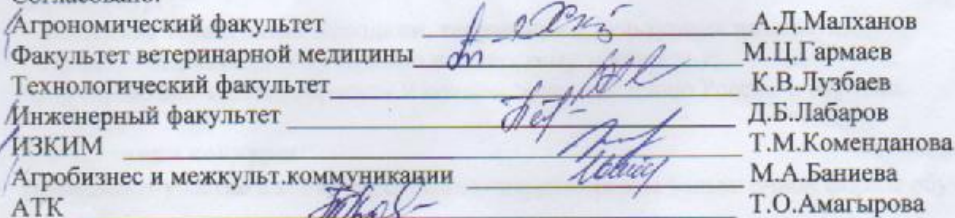 Согласовано:
Агрономический факультет А.Д.Малханов
Факультет ветеринарной медицины М.Ц.Гармаев
Технологический факультет К.В.Лузбаев
Инженерный факультет Д.Б.Лабаров
ИЗКИМ Т.М.Коменданова
Агробизнес и межкульт.коммуникации М.А.Баниева
АТК Т.О.Амагырова